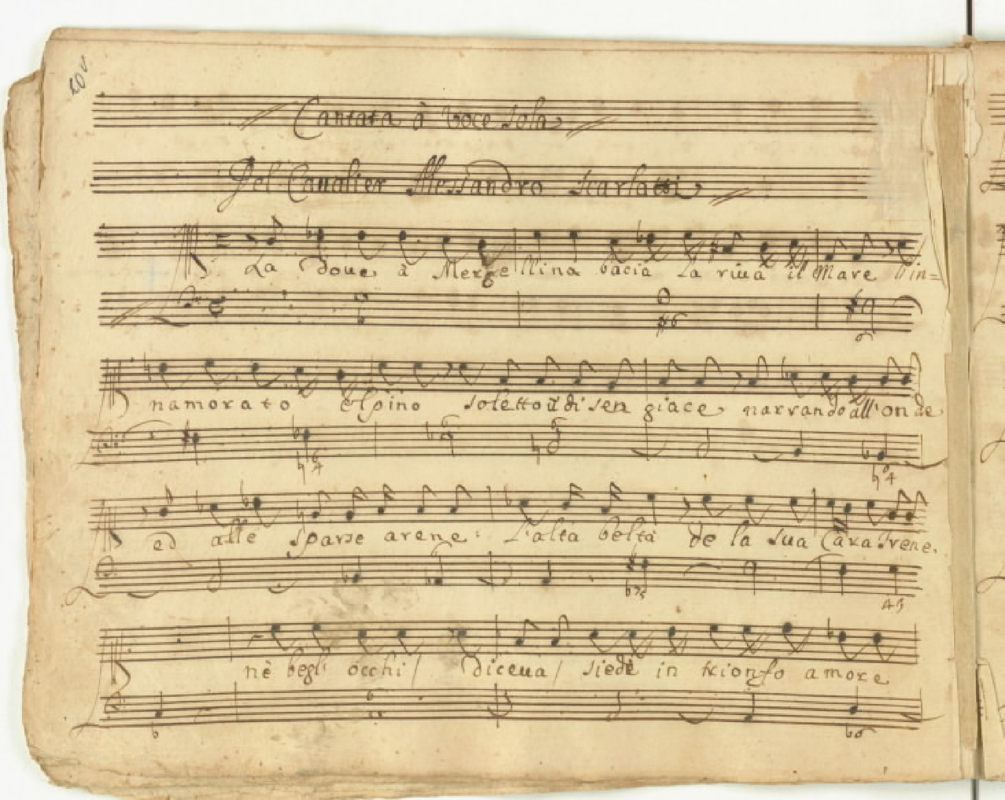 20v
Cantata à Voce sola
Del Caualier Alessandro Scarlatti
La doue à Mergellina bacia la riua il Mare l'in=
namorato Elpino soletto un di sen giace narrando all'onde
ed alle sparse arene: L'alta beltà de la sua Cara Irene.
nè begl' occhi / diceua / siede in trionfo amore